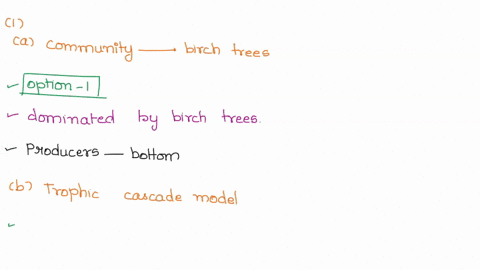 (1)
(a) community — birch trees
✓ option-1
✓ dominated by birch trees.
✓ Producers — bottom
(b) Trophic cascade model
✓